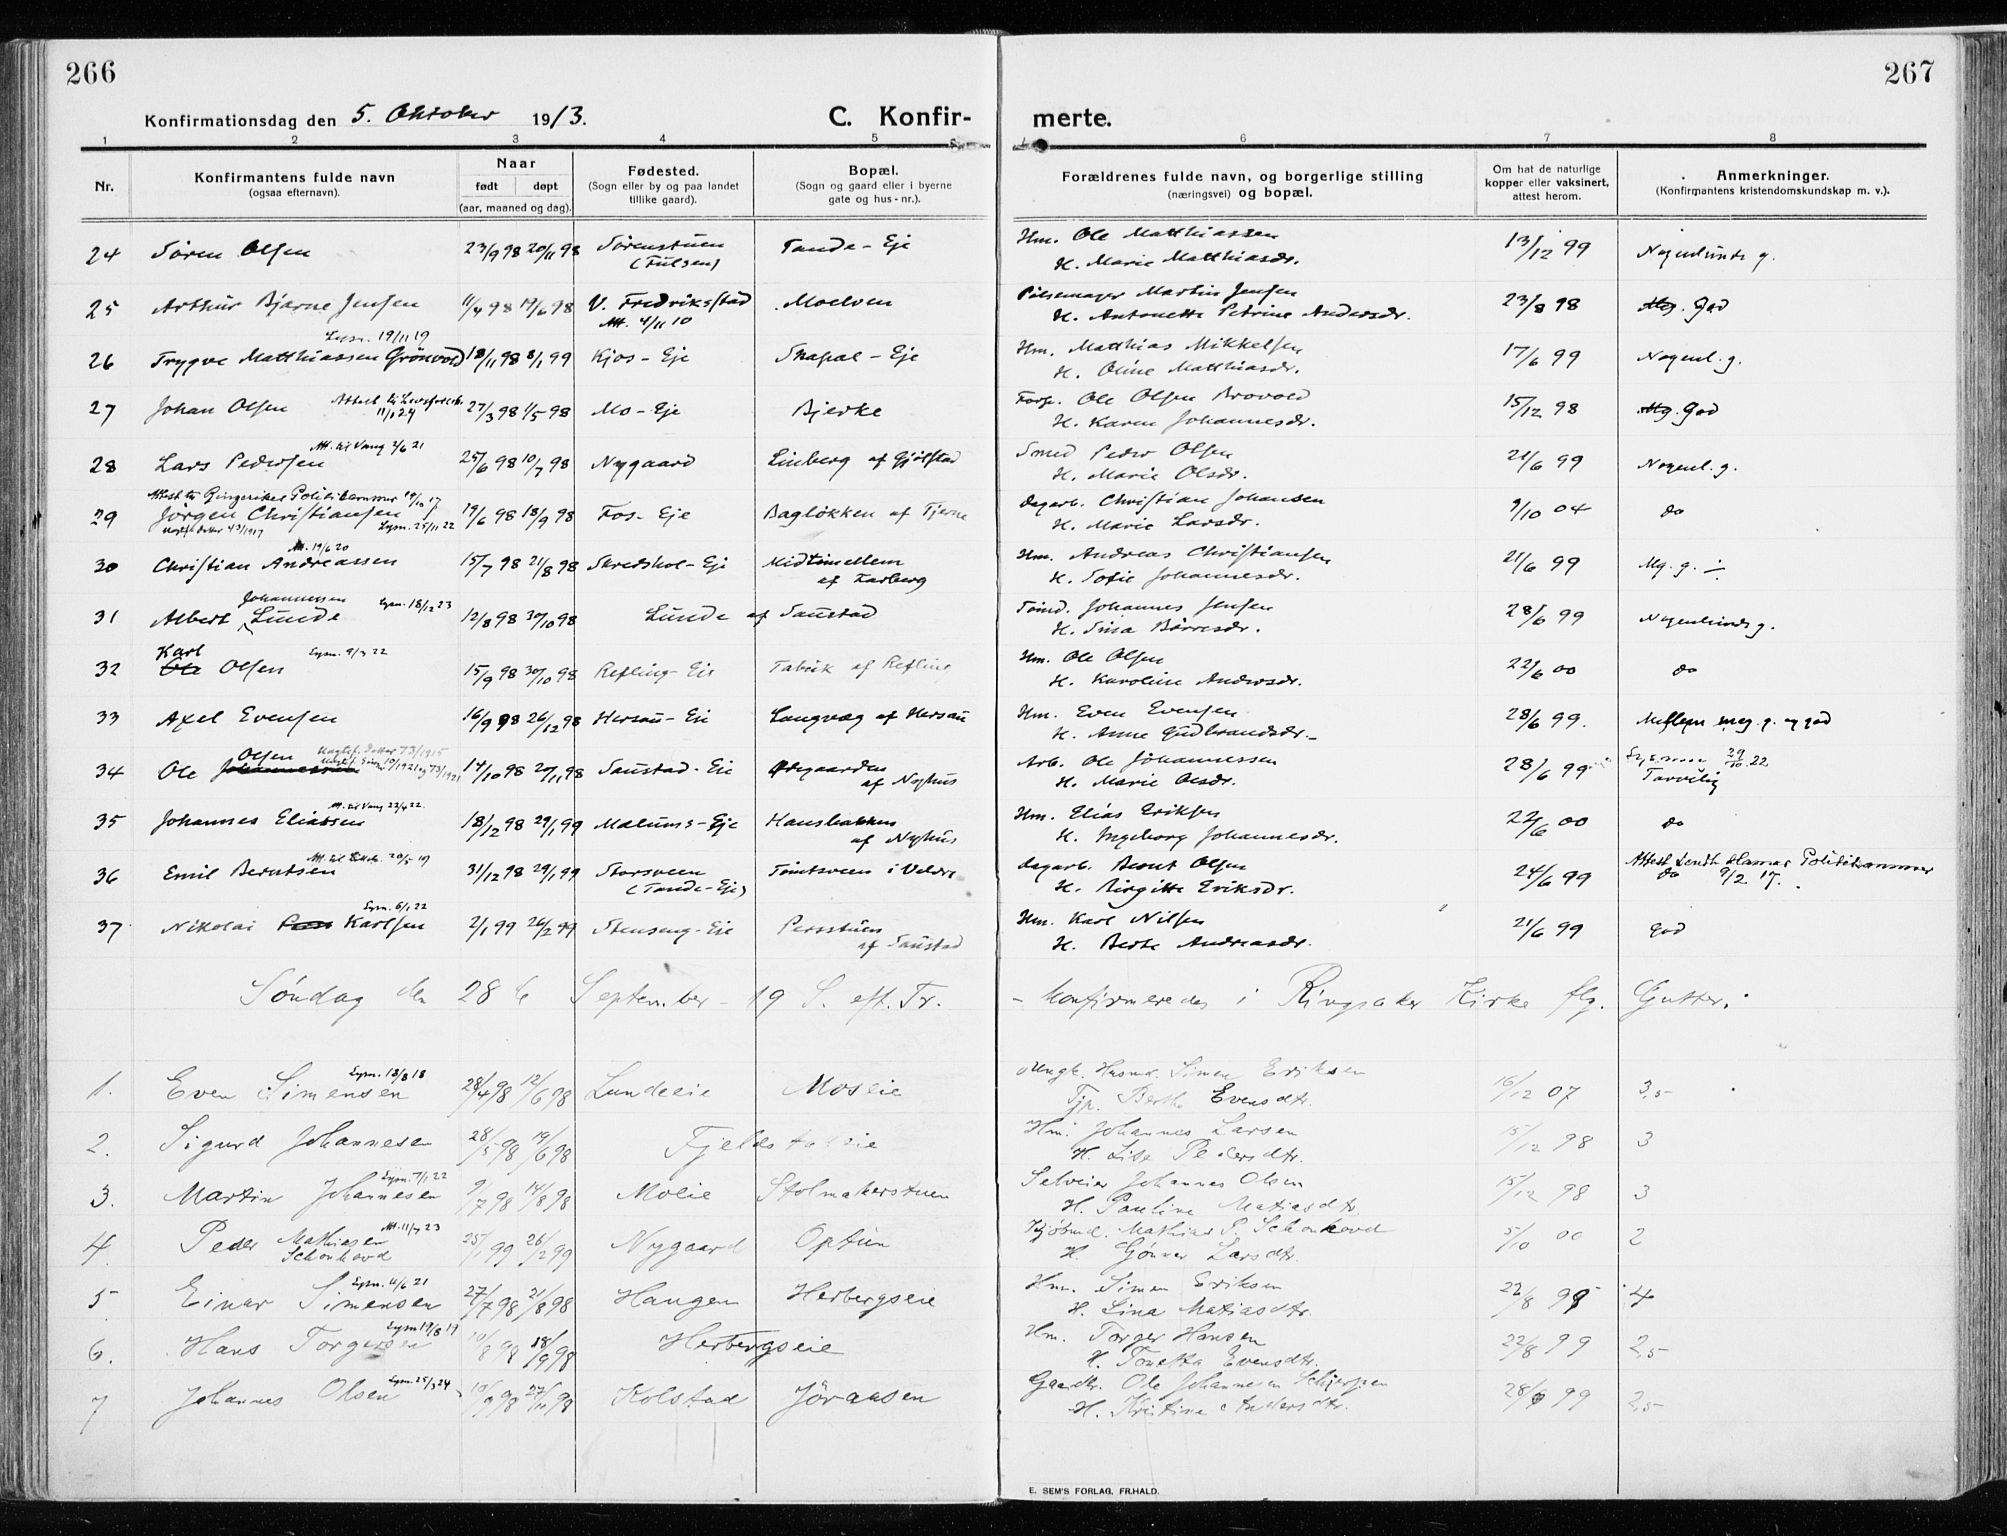 266
267
Konfirmationsdag den 5. Oktober 1913.
C. Konfirmerte.
1 2 3 4 5 6 7 8
Nr.
Konfirmantens fulde navn (ogsaa efternavn).
Naar født døpt (aar, maaned og dag).
Fødested. (Sogn eller by og paa landet tillike gaard).
Bopæl. (Sogn og gaard eller i byerne gate og hus-nr.).
Forældrenes fulde navn, og borgerlige stilling (næringsvei) og bopæl.
Om hat de naturlige kopper eller vaksinert, attest herom.
Anmerkninger. (Konfirmantens kristendomskundskap m. v.).
24 Sören Olsen 23/9 98 20/11 98 Sörenstuen (Fulsen) Tande - Eje Hm. Ole Matthiassen 13/12 99 Nogenlunde g.
H. Marie Matthiasdr.
25 Arthur Bjarne Jensen 11/4 98 19/6 98 V. Fredriksstad Moelven Pölsemager Martin Jensen 23/8 98 Mg. God
Att. 4/11 10 H. Antonette Petrine Andersdr.
Lysn. 19/11 19
26 Trygve Matthiassen Grönvold 18/11 98 8/1 99 Kjos - Eje Skapal - Eje Hm. Matthias Mikkelsen 17/6 99 Nogenl. g.
H. Oline Matthiasdr.
27 Johan Olsen 11/1 24 27/3 98 1/5 98 Mo - Eje Bjerke Forp. Ole Olsen Brovold 15/12 98 Mg. God
H. Karen Johannesdr.
Att. til Vang 2/6 21
28 Lars Pedersen 25/6 98 10/7 98 Nygaard Linberg af Gjölstad Smed Peder Olsen 21/6 99 Nogenl. g.
H. Marie Olsdr.
Attest til Ringerikes Politikammer 19/10 17
29 Jörgen Christiansen 19/6 98 18/9 98 Fos - Eje Baglökken af Tjerne Dagarb. Christian Johansen 9/10 04 do
Lysn. 25/11 22 H. Marie Larsdr.
Att. 19/6 20
30 Christian Andreassen 15/7 98 21/8 98 Skredshol - Eje Midtimellem af Farberg Hm. Andreas Christiansen 21/6 99 Mg. g. ÷
H. Sofie Johannesdr.
31 Albert Johannessen Lunde Lysn. 18/12 23 12/8 98 30/10 98 Lunde af Saustad Tömd. Johannes Jensen 28/6 99 Nogenlunde g.
H. Sina Börresdr.
32 Karl Ole Olsen Lysn. 9/3 22 15/9 98 30/10 98 Refling - Eie Fabrik af Refling Hm. Ole Olsen 22/6 00 do
H. Karoline Andersdr.
33 Axel Evensen 16/9 98 26/12 98 Hersau - Eie Langvæg af Hersau Hm. Even Evensen 28/6 99. Mellem meg. g. og god
H. Anne Gudbrandsdr.
34 Ole Olsen Johannessen 14/10 98 20/11 98 Saustad - Eie Ødegaarden af Nyhus Arb. Ole Johannessen 28/6 99 29/10 22 Tarvelig
H. Marie Olsdr.
Att. til Vang 23/4 22.
35 Johannes Eliassen 18/12 98 29/1 99 Mælums - Eje Hansbakken af Nyhus Hm. Elias Eriksen 22/6 00 do
H. Ingeborg Johannesdr.
36 Emil Berntsen 31/12 98 29/1 99 Storsveen (Tande - Eje) Tomtsveen i Veldre Dagarb. Bernt Olsen 24/6 99 Attest sendt Hamar Politikammer 9/2 17. do
H. Birgitte Eriksdr.
Lysn. 6/1 22
37 Nikolai Karlsen 2/1 99 26/2 99 Stenseng - Eie Persstuen af Saustad Hm. Karl Nilsen 21/6 99 god
H. Berte Andreasdr.
Söndag den 28 de September - 19 S. eft. Tr. - konfirmeredes i Ringsaker Kirke flg. Gutter:
Lysn. 13/8 18
1. Even Simensen 28/4 98 12/6 98 Lundeeie Moseie Ungk. Husmd. Simen Eriksen 16/12 07 3,5
Tjp. Berthe Evensdtr.
2. Sigurd Johannesen 28/5 98 19/6 98 Fjeldstadeie Hm. Johannes Larsen 15/12 98 3
H. Lise Pedersdtr.
Lysn. 7/1 22
3. Martin Johannesen 9/7 98 14/8 98 Moeie Stolmakerstuen Selveier Johannes Olsen 15/12 98 3
H. Pauline Matiasdtr.
Att. 11/7 23
4. Peder Mathiesen Schonhovd 25/1 99 26/2 99 Nygaard Optun Kjöbmd. Mathias P. Schonhovd 5/10 00 2
H. Gunnor Larsdtr.
Lysn. 4/6 21
5 Einar Simensen 27/7 98 21/8 98 Haugen Herbergseie Hm. Simen Eriksen 22/8 99 4
H. Lina Matiasdtr.
Lysn 19/8 19
6. Hans Torgersen 10/8 98 18/9 98 Herbergseie Hm. Torger Hansen 22/8 99 2,5
H. Tonetta Evensdtr.
Lysn. 25/3 24
7 Johannes Olsen 10/9 98 27/11 98 Kolstad Jöransen Gaardbr. Ole Johannesen Schjerpen 28/6 99 2,5
H. Kristine Andersdtr.
E. SEM'S FORLAG, FR.HALD.